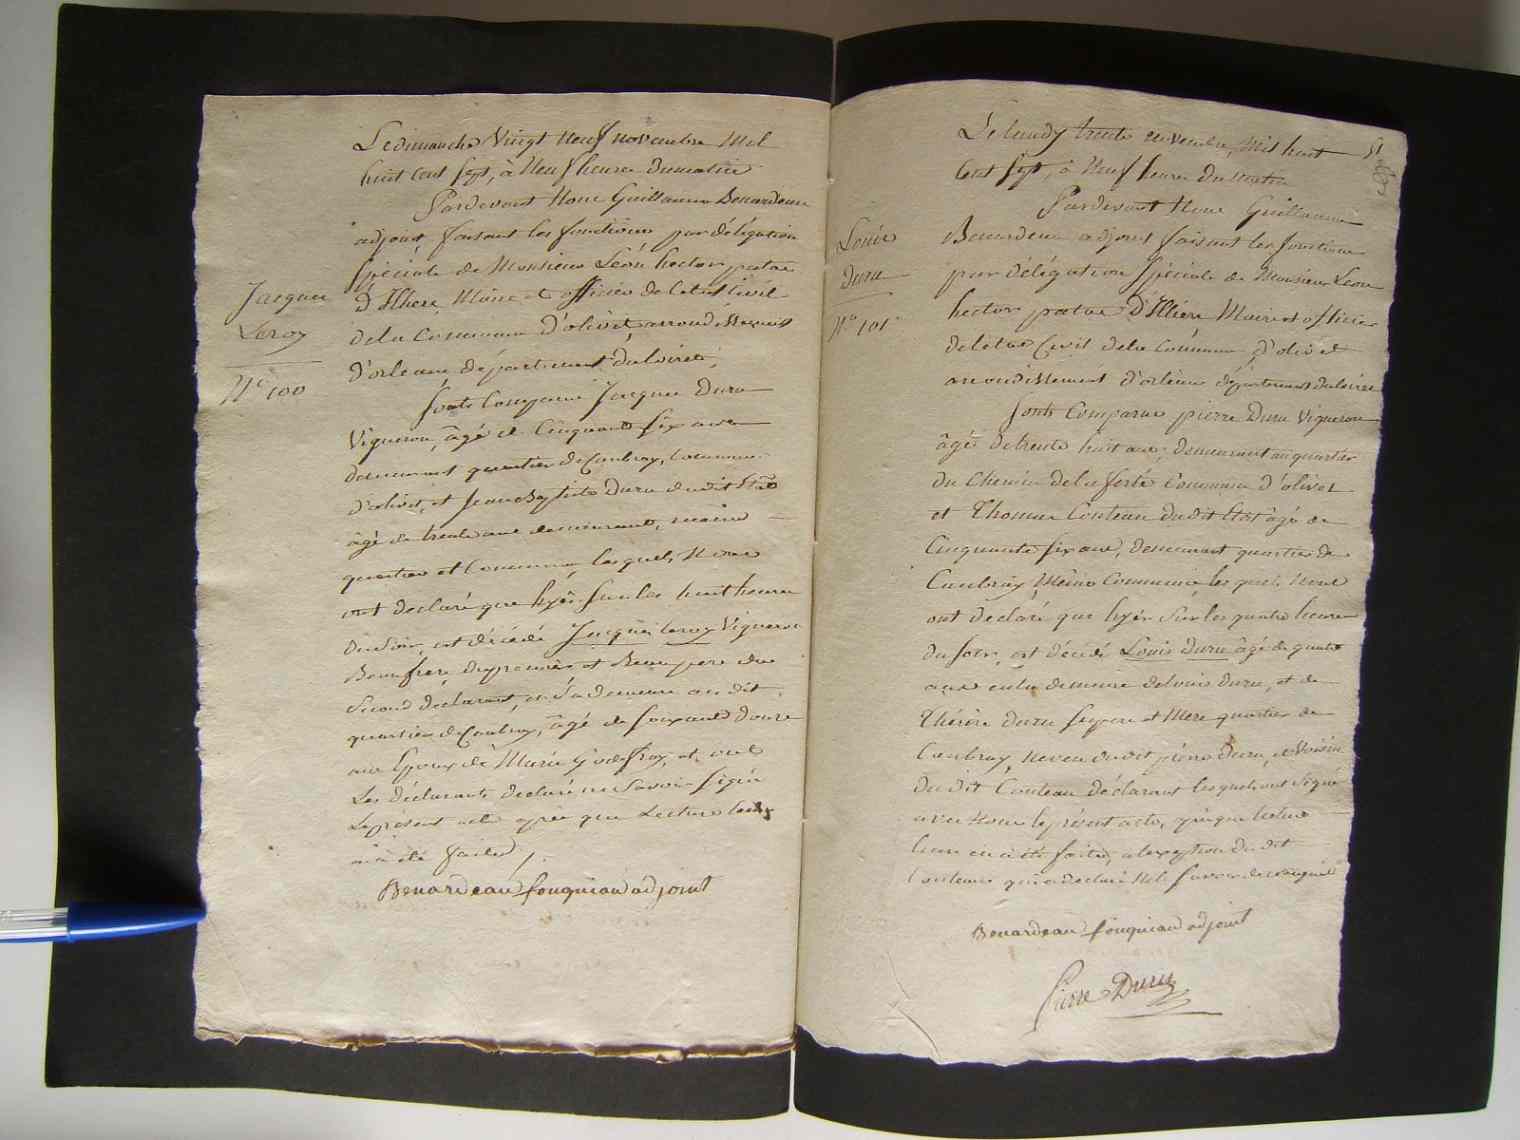 Jacques
Leroy
N° 100
Le dimanche Vingt neuf novembre Mil
huit Cent Sept, à Neuf heures Dumatin
Pardevant Nous Guillaume Benardeau
adjoint faisant les fonctions par délégation
Spéciale de Monsieur Léon hector patas
D'Illiers Maire et officier de l'état Civil
de la Commune D'olivet, arrondissement
D'orleans département Duloiret,
Sont Comparus Jacques Duru
Vigneron, âgé de Cinquante Six ans
demeurant quartier de Caubray, Commune
d'olivet, et Jean Baptiste Duru dudit Etat
âgé de trente ans demeurant, même
quartier et Commune, lesquels Nous
ont declaré que hyer Sur les huit heures
Du Soir, est décédé Jacques leroy Vigneron
Beaufrere du premier et Beaupere du
Second déclarant, en Sa demeure au dit
quartier de Caubray, âgé de Soixante Douze
ans Epoux de Marie Godefroy, et ont
Les déclarants declaré ne Savoir Signer
Le present acte après que Lecture leur
en a été faite
Benardeau fouqueau adjoint
51
Louis
Duru
N° 101
Le lundy trente novembre, Mil huit
Cent Sept, à Neuf heures Du matin
Pardevant Nous Guillaume
Benardeau adjoint faisant les fonctions
par délégation Spéciale de Monsieur Leon
hector patas D'Illiers Maire et officier
de l'etat Civil de la Commune d'olivet
arrondissement d'orléans département duloiret
Sont Comparus pierre Duru Vigneron
âgé de trente huit ans, demeurant au quartier
du Chemin de la ferté Commune d'olivet
et Thomas Couteau dudit Etat âgé de
Cinquante Six ans, demeurant quartier de
Caubray, Même Commune lesquels Nous
ont declaré que hyer Sur les quatre heures
du Soir, est décédé Louis Duru âgé de quatre
ans en la demeure de louis Duru, et de
Thérèse Duru Ses pere et Mere quartier de
Caubray, Neveu dudit pierre Duru, et Voisin
Du dit Couteau déclarants lesquels ont Signé
avec Nous le présent acte, après que lecture
leur en a été faite, a l'exeption du dit
Couteau qui a declaré Ne le Savoir
Benardeau fouqueau adjoint
Pierre Duru